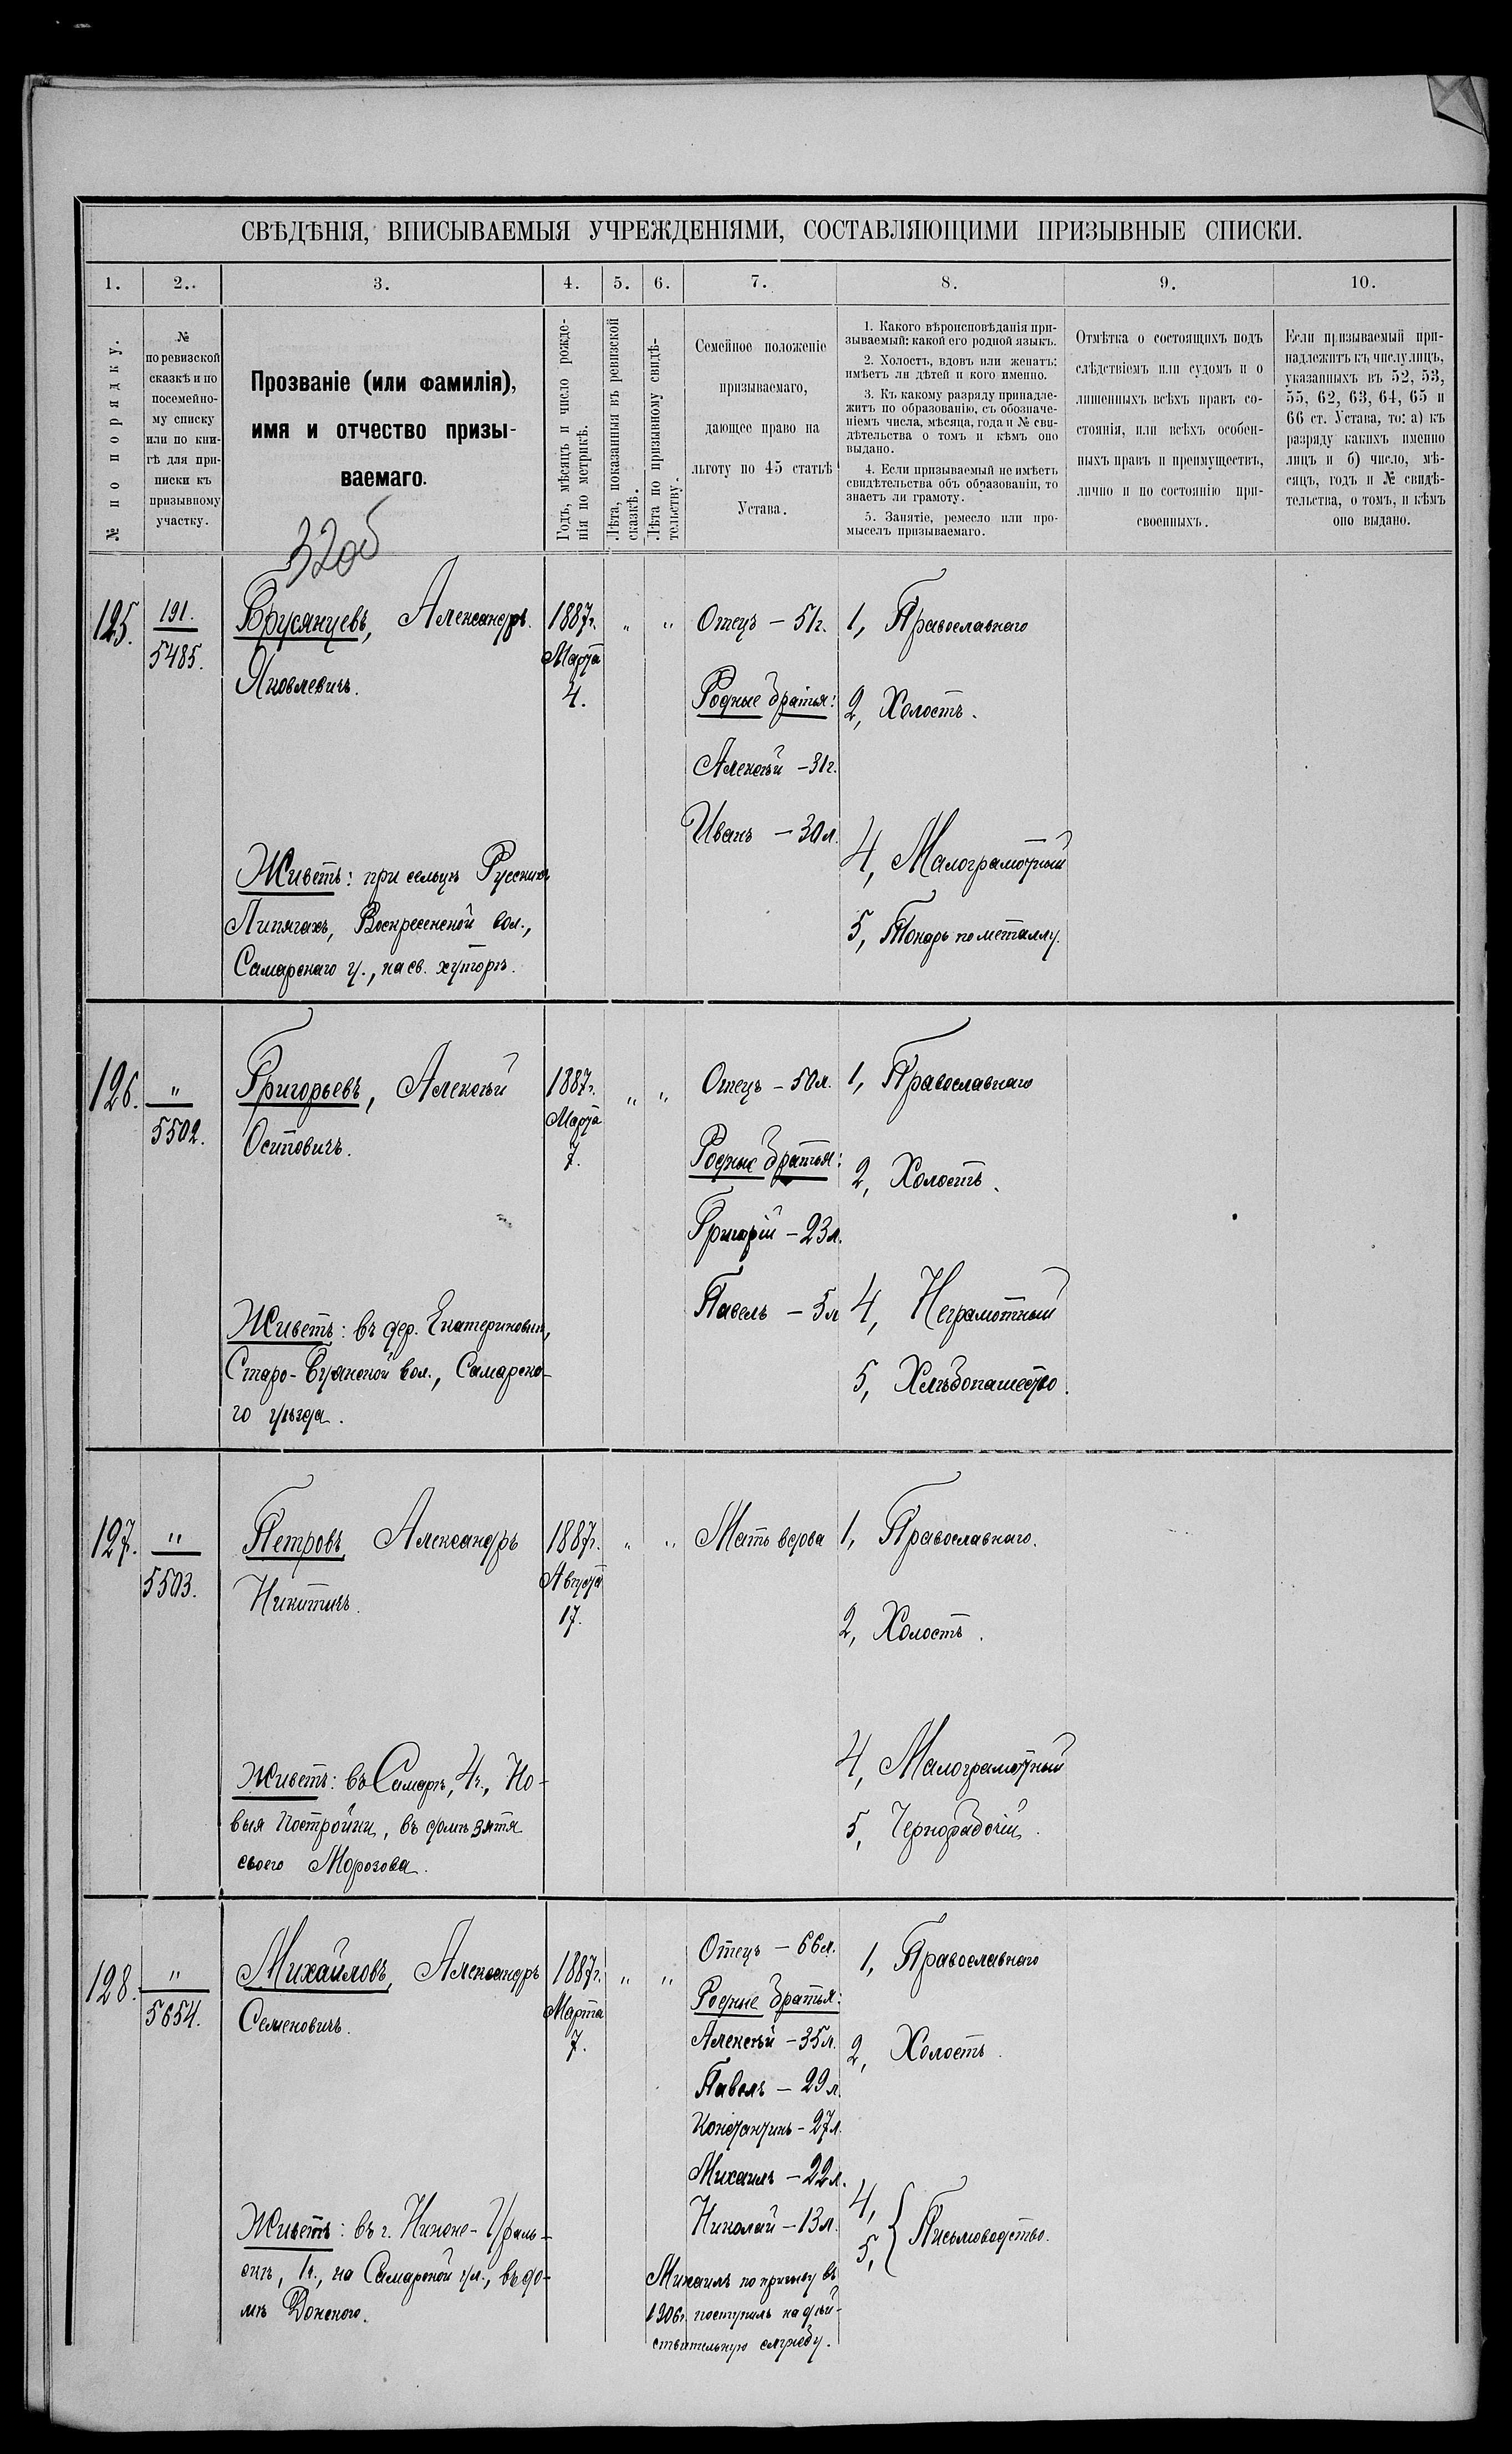 СВѢДѢНІЯ, ВПИСЫВАЕМЫЯ УЧРЕЖДЕНІЯМИ, СОСТАВЛЯЮЩИМИ ПРИЗЫВНЫЕ СПИСКИ.
1.
2.
3.
4.
5.
6.
7.
8.
9.
10.
№ по порядку.
№
по ревизской
сказкѣ и по
посемейно-
му списку
или по кни-
гѣ для при-
писки къ
призывному
участку.
Прозваніе (или фамилія),
имя и отчество призы-
ваемаго.
Годъ, мѣсяцъ и число рожде-
нія по метрикѣ.
Лѣта, показанныя въ ревизской
сказкѣ.
Лѣта по призывному свидѣ-
тельству.
Семейное положеніе
призываемаго,
дающее право на
льготу по 45 статьѣ
Устава.
1. Какого вѣроисповѣданія при-
зываемый: какой его родной языкъ.
2. Холостъ, вдовъ или женатъ:
имѣетъ ли дѣтей и кого именно.
3. Къ какому разряду принадле-
житъ по образованію, съ обозначе-
ніемъ числа, мѣсяца, года и № сви-
дѣтельства о томъ и кѣмъ оно
выдано.
4. Если призываемый не имѣетъ
свидѣтельства объ образованіи, то
знаетъ ли грамоту.
5. Занятіе, ремесло или про-
мыселъ призываемаго.
Отмѣтка о состоящихъ подъ
слѣдствіемъ или судомъ и о
лишенныхъ всѣхъ правъ со-
стоянія, или всѣхъ особен-
ныхъ правъ и преимуществъ,
лично и по состоянію при-
своенныхъ.
Если призываемый при-
надлежитъ къ числу лицъ,
указанныхъ въ 52, 53,
55, 62, 63, 64, 65 и
66 ст. Устава, то: а) къ
разряду какихъ именно
лицъ и б) число, мѣ-
сяцъ, годъ и № свидѣ-
тельства, о томъ, и кѣмъ
оно выдано.
32об
125.
191.
5485.
Брусянцевъ, Александръ
Яковлевичъ.
Живетъ: при сельцѣ Русскихъ
Липягахъ, Воскресенской вол.,
Самарскаго у., на св. хуторѣ.
1887г.
Марта
4.
"
"
Отецъ – 51г.
Родные братья:
Алексѣй – 31г.
Иванъ – 30л.
1, Православнаго
2, Холостъ.
4, Малограмотный
5, Токарь по металлу.
126.
"
5502.
Григорьевъ, Алексѣй
Осиповичъ.
Живетъ: въ дер. Екатериновкѣ,
Старо-Буянской вол., Самарска-
го уѣзда.
1887г.
Марта
7.
"
"
Отецъ – 50л.
Родные братья:
Григорій – 23л.
Павелъ – 5л
1, Православнаго
2, Холостъ.
4, Неграмотный
5, Хлѣбопашество.
127.
"
5503.
Петровъ, Александръ
Никитичъ.
Живетъ: въ Самарѣ, 4ч., Но-
выя Постройки, въ домѣ зятя
своего Морозова.
1887г.
Августа
17.
"
"
Мать вдова
1, Православнаго.
2, Холостъ.
4, Малограмотный
5, Чернорабочій.
128.
"
5654.
Михайловъ, Александръ
Семеновичъ.
Живетъ: въ г. Николо-Ураль-
скѣ, 1ч., на Самарской ул., въ до-
мѣ Донского.
1887г.
Марта
7.
"
"
Отецъ – 66л.
Родные братья:
Алексѣй – 35л.
Павелъ – 29л.
Константинъ – 27л.
Михаилъ – 22л.
Николай – 13л.
Михаилъ по призыву въ
1906г. поступилъ на дѣй-
ствительную службу.
1, Православнаго
2, Холостъ.
4,
5, { Письмоводство.